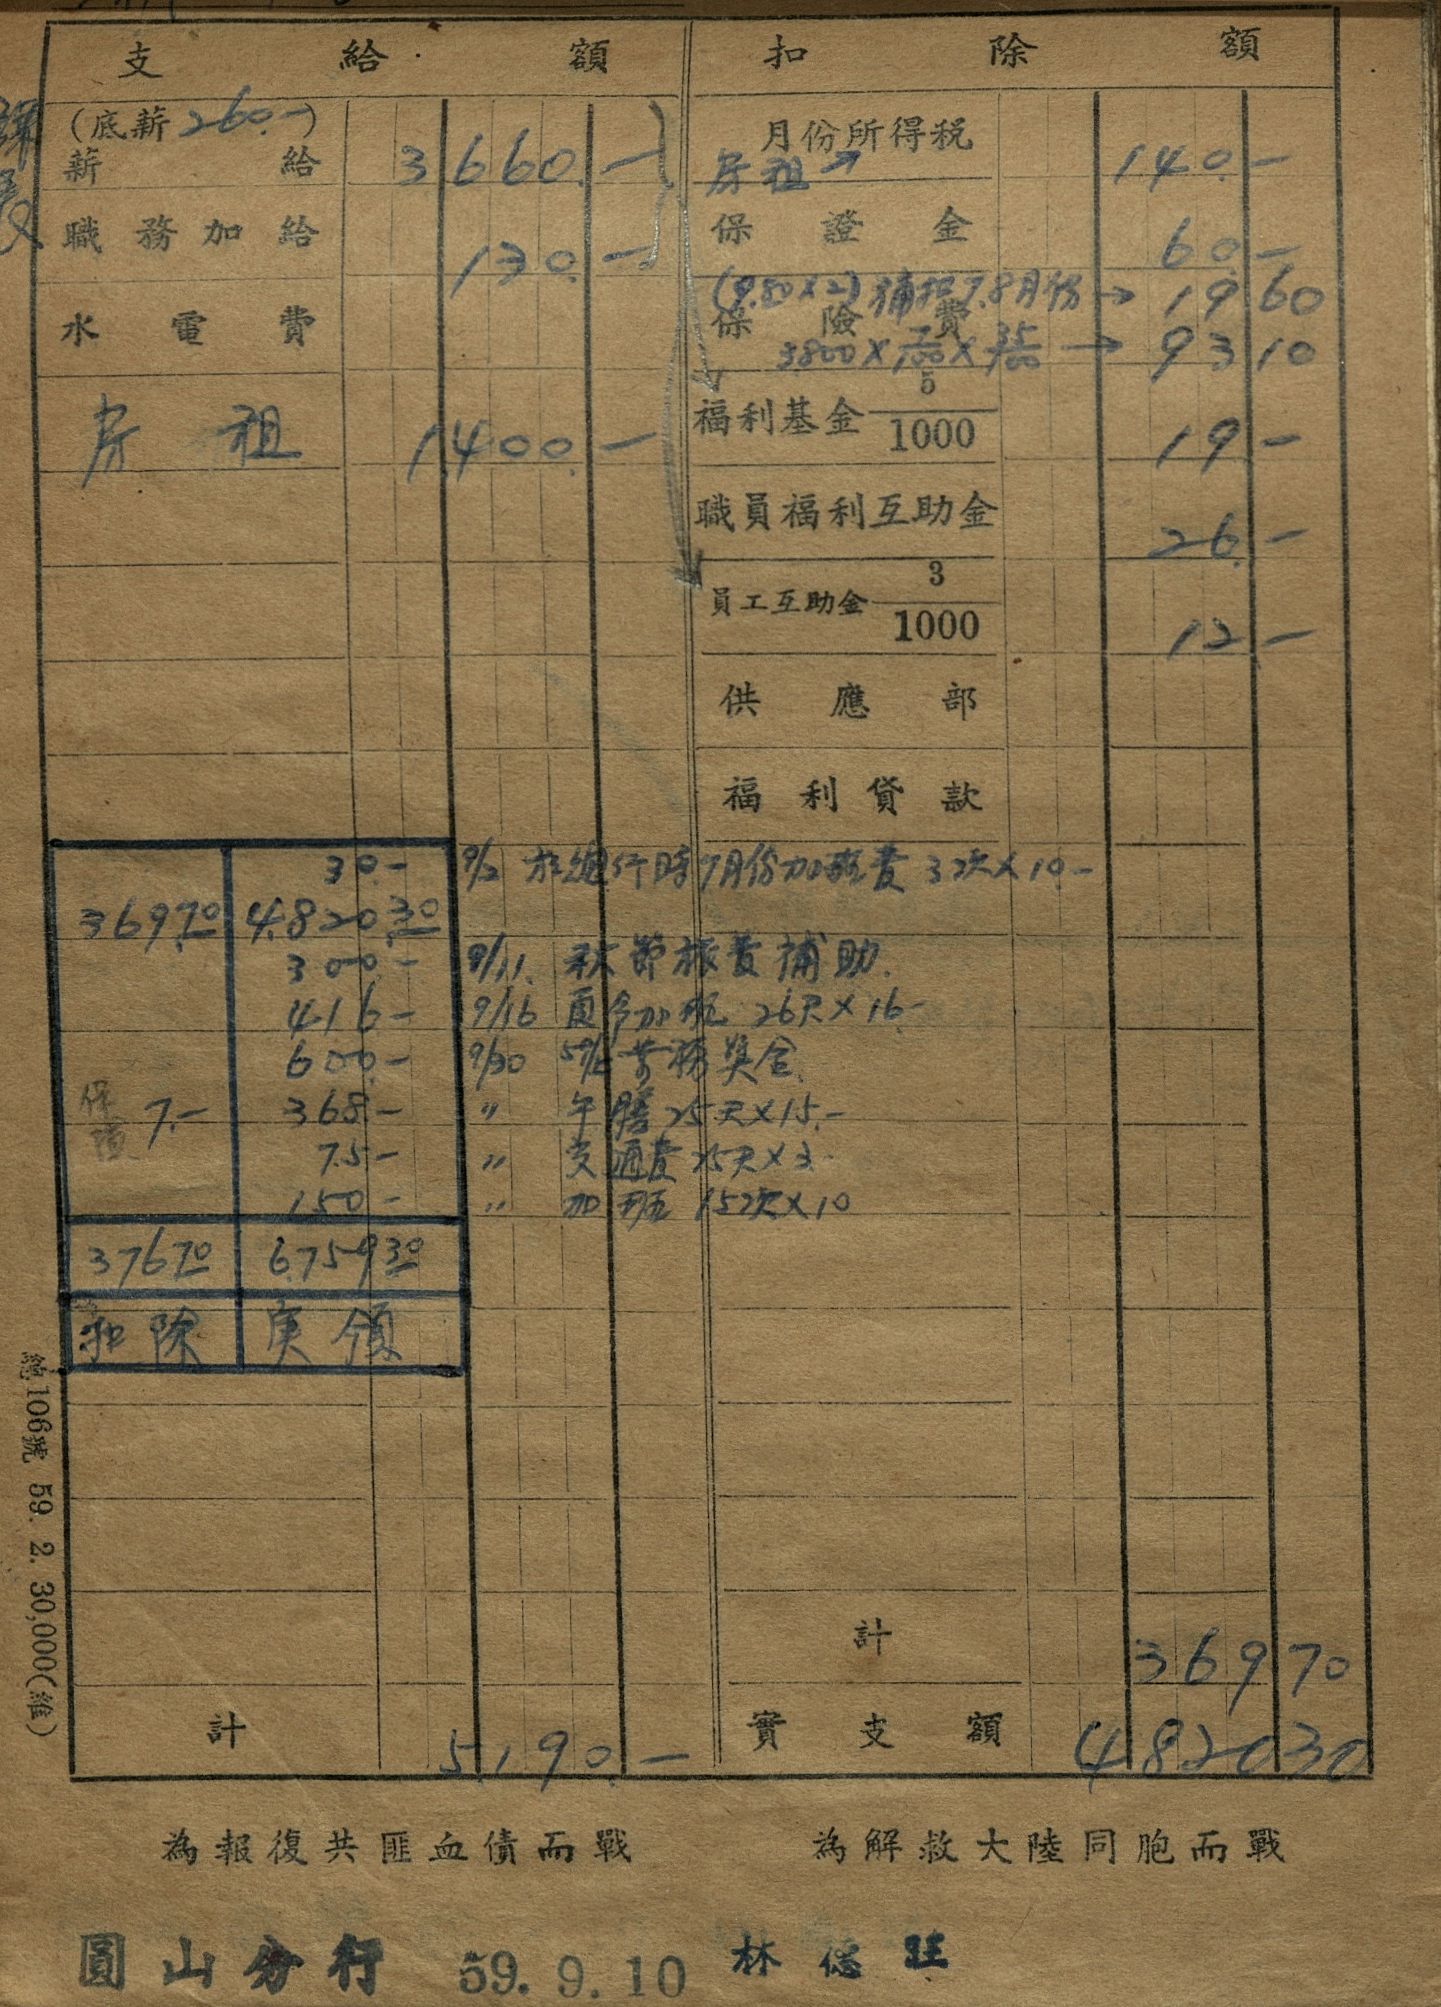 支給額
(底薪260.-)
薪給 3660.-
職務加給 130.-
水電費
房租 1400.-
扣除額
月份所得税
房租→ 140.-
保證金 60.-
(9.80×2)補扣7.8月份→ 19 60
保險費
3800×7/100×35/100→ 93 10
福利基金 5/1000 19-
職員福利互助金 26.-
員工互助金 3/1000 12-
供應部
福利貸款
30.- 9/2 於總行時7月份加班費 3次×10.-
369.70 4.820.30
300.- 9/11. 秋節旅費補助.
416- 9/16 夏令加班 26天×16-
600.- 9/30
保險 7.- 368.- 〃 午膳 25天×15.-
75- 〃 交通費 25天×3.-
150- 〃 加班 15次×10
37670 6.75930
扣除 実領
計 369 70
計 5,190.-
實支額 4820 30
為報復共匪血債而戰
為解救大陸同胞而戰
圓山分行 59.9.10 林德旺
總106號 59. 2. 30,000(維)
課長